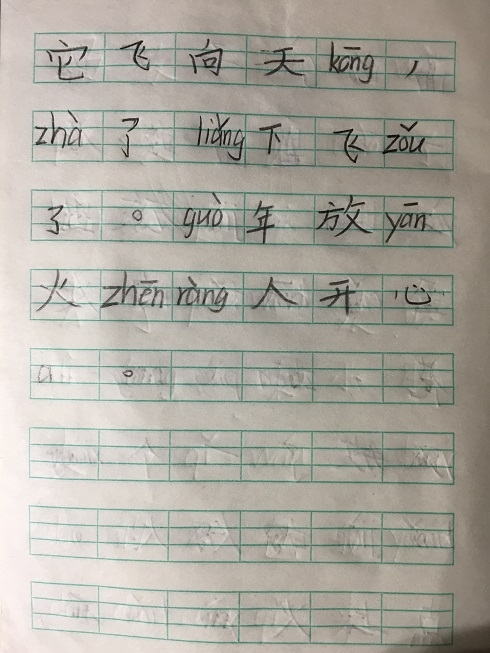 它飞向天kōng，
zhà了liǎng下飞zǒu
了。guò年放yān
火zhēn ràng人开心
a。